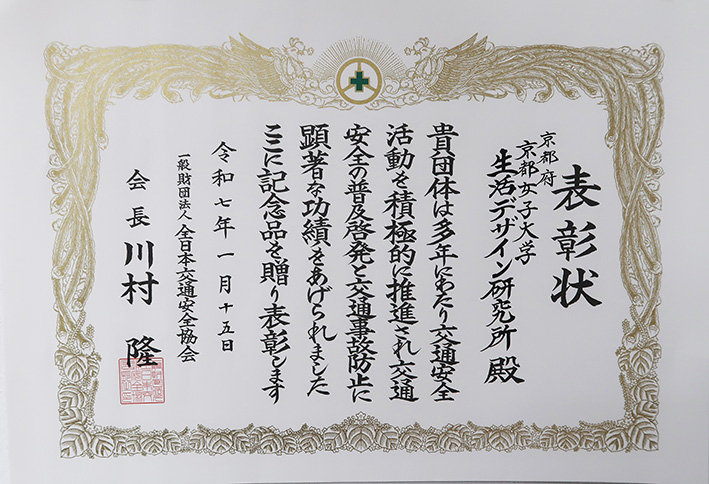 表彰状
京都府
京都女子大学
生活デザイン研究所 殿
貴団体は多年にわたり交通安全
活動を積極的に推進され交通
安全の普及啓発と交通事故防止に
顕著な功績をあげられました
ここに記念品を贈り表彰します
令和七年一月十五日
一般財団法人 全日本交通安全協会
会長 川村 隆